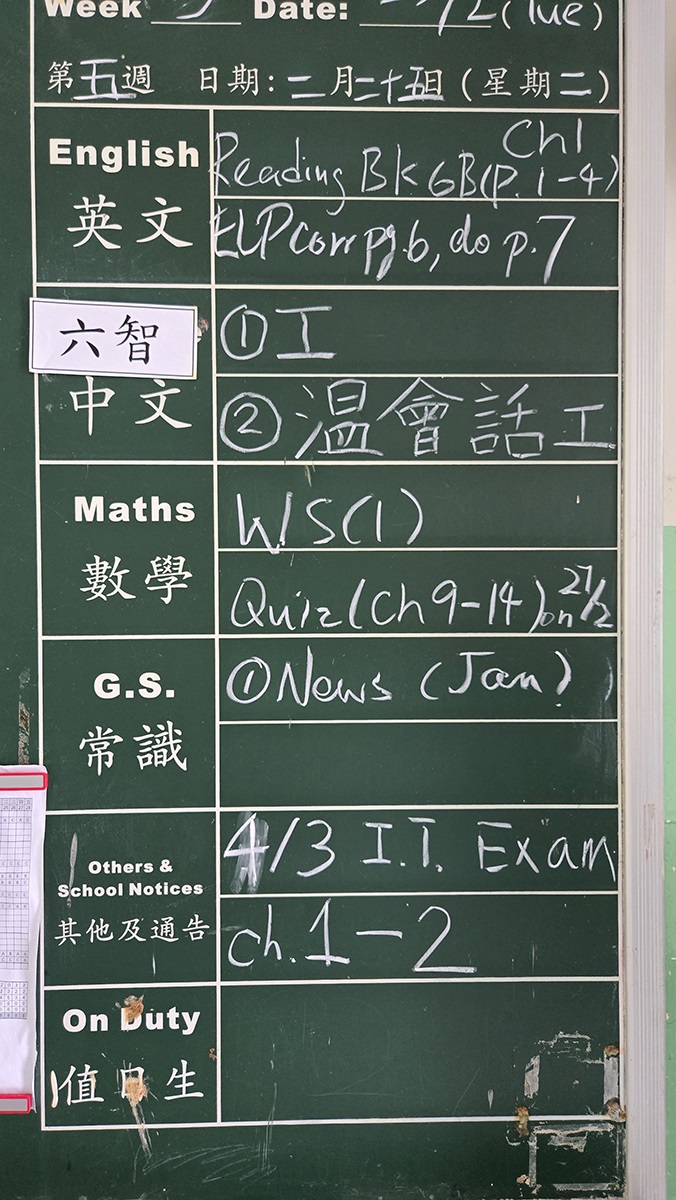 Week Date: /2 (Tue)
第五週 日期: 二月二十五日 (星期二)
English
英文
Ch1
Reading BK 6B(p. 1-4)
ELP corr pg.6, do p.7
六智
中文
①工
②溫會話工
Maths
數學
W.S(1)
Quiz (Ch 9-14) on 27/2
G.S.
常識
①News (Jan)
Others &
School Notices
其他及通告
4/3 I.T. Exam
ch.1-2
On Duty
值日生